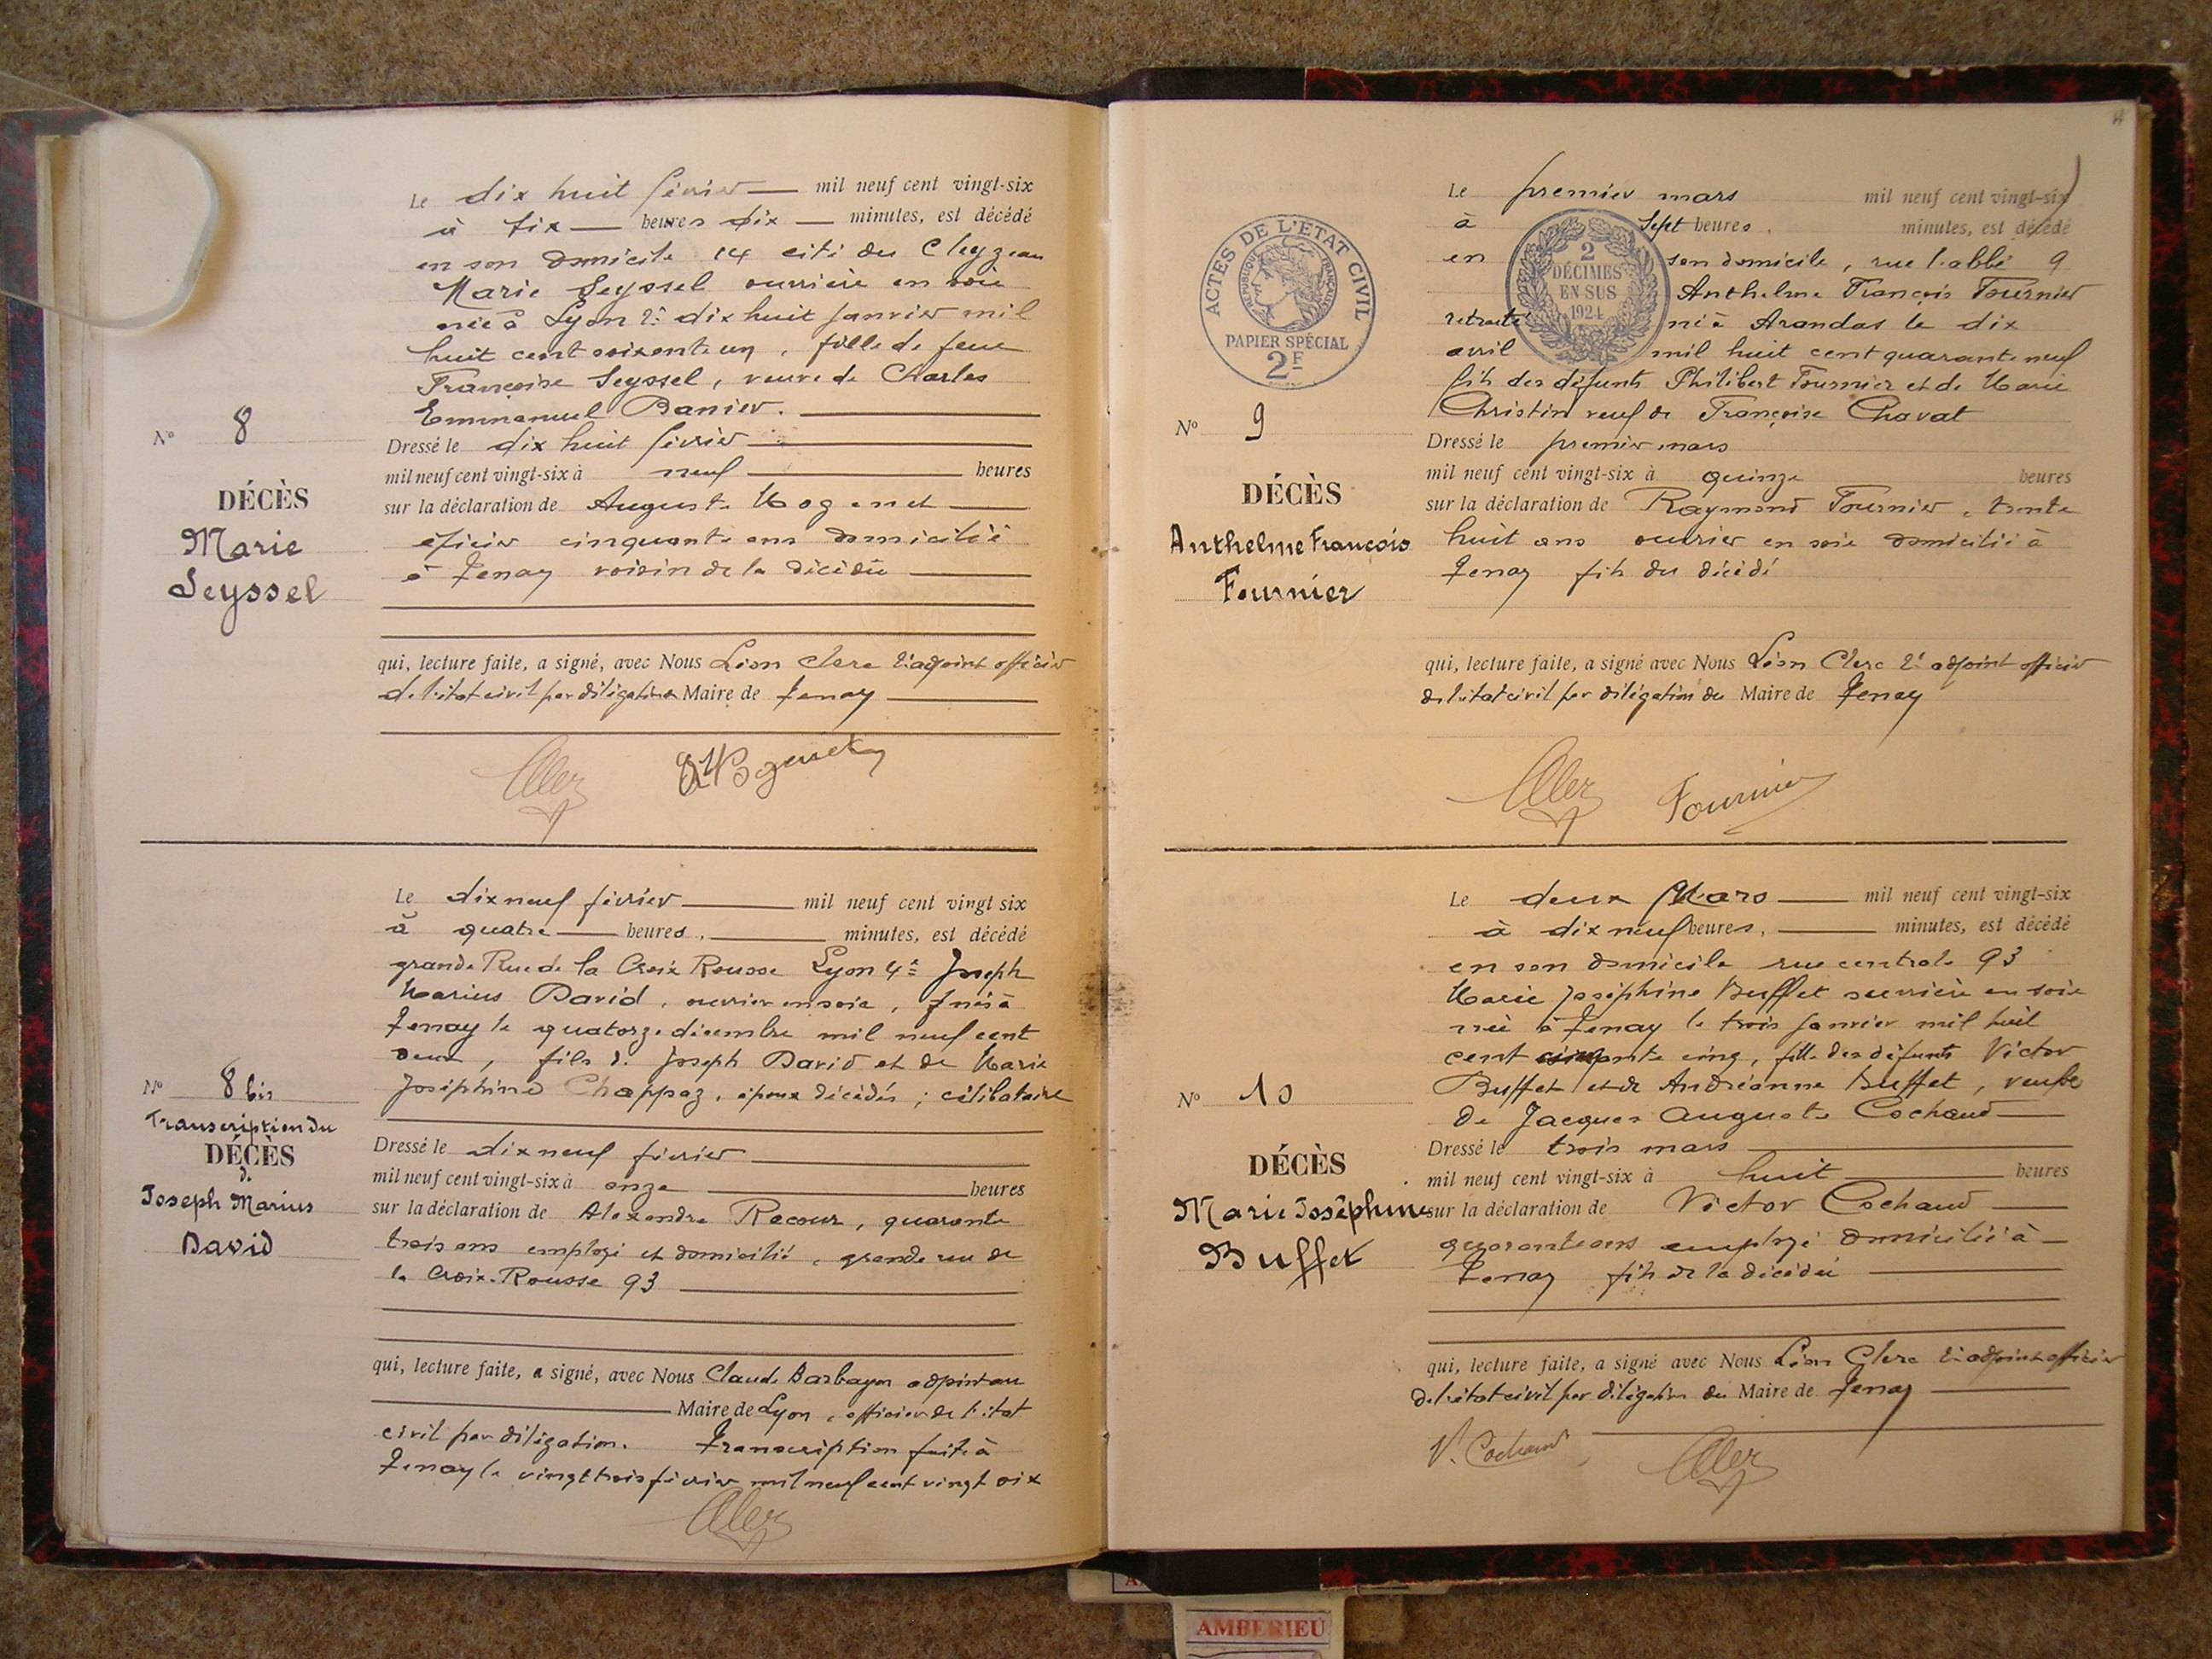 Le dix huit février mil neuf cent vingt-six
à six heures dix minutes, est décédé
en son domicile 14 cité du Cleyzieu
Marie Seyssel ouvrière en soie
née à Lyon 2e dix huit janvier mil
huit cent soixante un, fille de feue
Françoise Seyssel, veuve de Charles
Emmanuel Banier.
Nº 8
DÉCÈS
Marie
Seyssel
Dressé le dix huit février
mil neuf cent vingt-six à neuf heures
sur la déclaration de Auguste
épicier cinquante ans domicilié
à Tenay voisin de la décédée
qui, lecture faite, a signé, avec Nous Léon Clerc 2e adjoint officier
de l'état civil par délégation Maire de Tenay
Le dix neuf février mil neuf cent vingt six
à quatre heures, minutes, est décédé
grande Rue de la Croix Rousse Lyon 4e Joseph
Marius David, ouvrier en soie, né à
Tenay le quatorze décembre mil neuf cent
deux, fils de Joseph David et de Marie
Joséphine Chappaz, époux décédés ; célibataire
Nº 8 bis
Transcription du
DÉCÈS
de
Joseph Marius
David
Dressé le dix neuf février
mil neuf cent vingt-six à onze heures
sur la déclaration de Alexandre Racour, quarante
trois ans employé et domicilié, grande rue de
la Croix-Rousse 93
qui, lecture faite, a signé, avec Nous Claude adjoint au
Maire de Lyon, officier de l'état
civil par délégation. Transcription faite à
Tenay le vingt trois février mil neuf cent vingt six
ACTES DE L'ETAT CIVIL
REPUBLIQUE FRANÇAISE
PAPIER SPÉCIAL
2F
2
DÉCIMES
EN SUS
1924
Le premier mars mil neuf cent vingt-six
à sept heures. minutes, est décédé
en son domicile, rue l'abbé 9
Anthelme François Fournier
retraité né à Arandas le dix
avril mil huit cent quarante neuf
fils des défunts Philibert Fournier et de Marie
Christin veuf de Françoise Chavat
Nº 9
DÉCÈS
Anthelme François
Fournier
Dressé le premier mars
mil neuf cent vingt-six à quinze heures
sur la déclaration de Raymond Fournier, trente
huit ans ouvrier en soie domicilié à
Tenay fils du décédé
qui, lecture faite, a signé avec Nous Léon Clerc 2e adjoint officier
de l'état civil par délégation du Maire de Tenay
Fournier
Le deux Mars mil neuf cent vingt-six
à dix neuf heures, minutes, est décédé
en son domicile rue centrale 93
Marie Joséphine Buffet ouvrière en soie
née à Tenay le trois janvier mil huit
cent cinquante cinq, fille des défunts Victor
Buffet et de Andréanne Buffet, veuve
de Jacques Auguste Cochaud
Nº 10
DÉCÈS
Marie Joséphine
Buffet
Dressé le trois mars
mil neuf cent vingt-six à huit heures
sur la déclaration de Victor Cochaud
quarante ans employé domicilié à
Tenay fils de la décédée
qui, lecture faite, a signé avec Nous Léon Clerc 2e adjoint officier
de l'état civil par délégation du Maire de Tenay
V. Cochaud
AMBERIEU